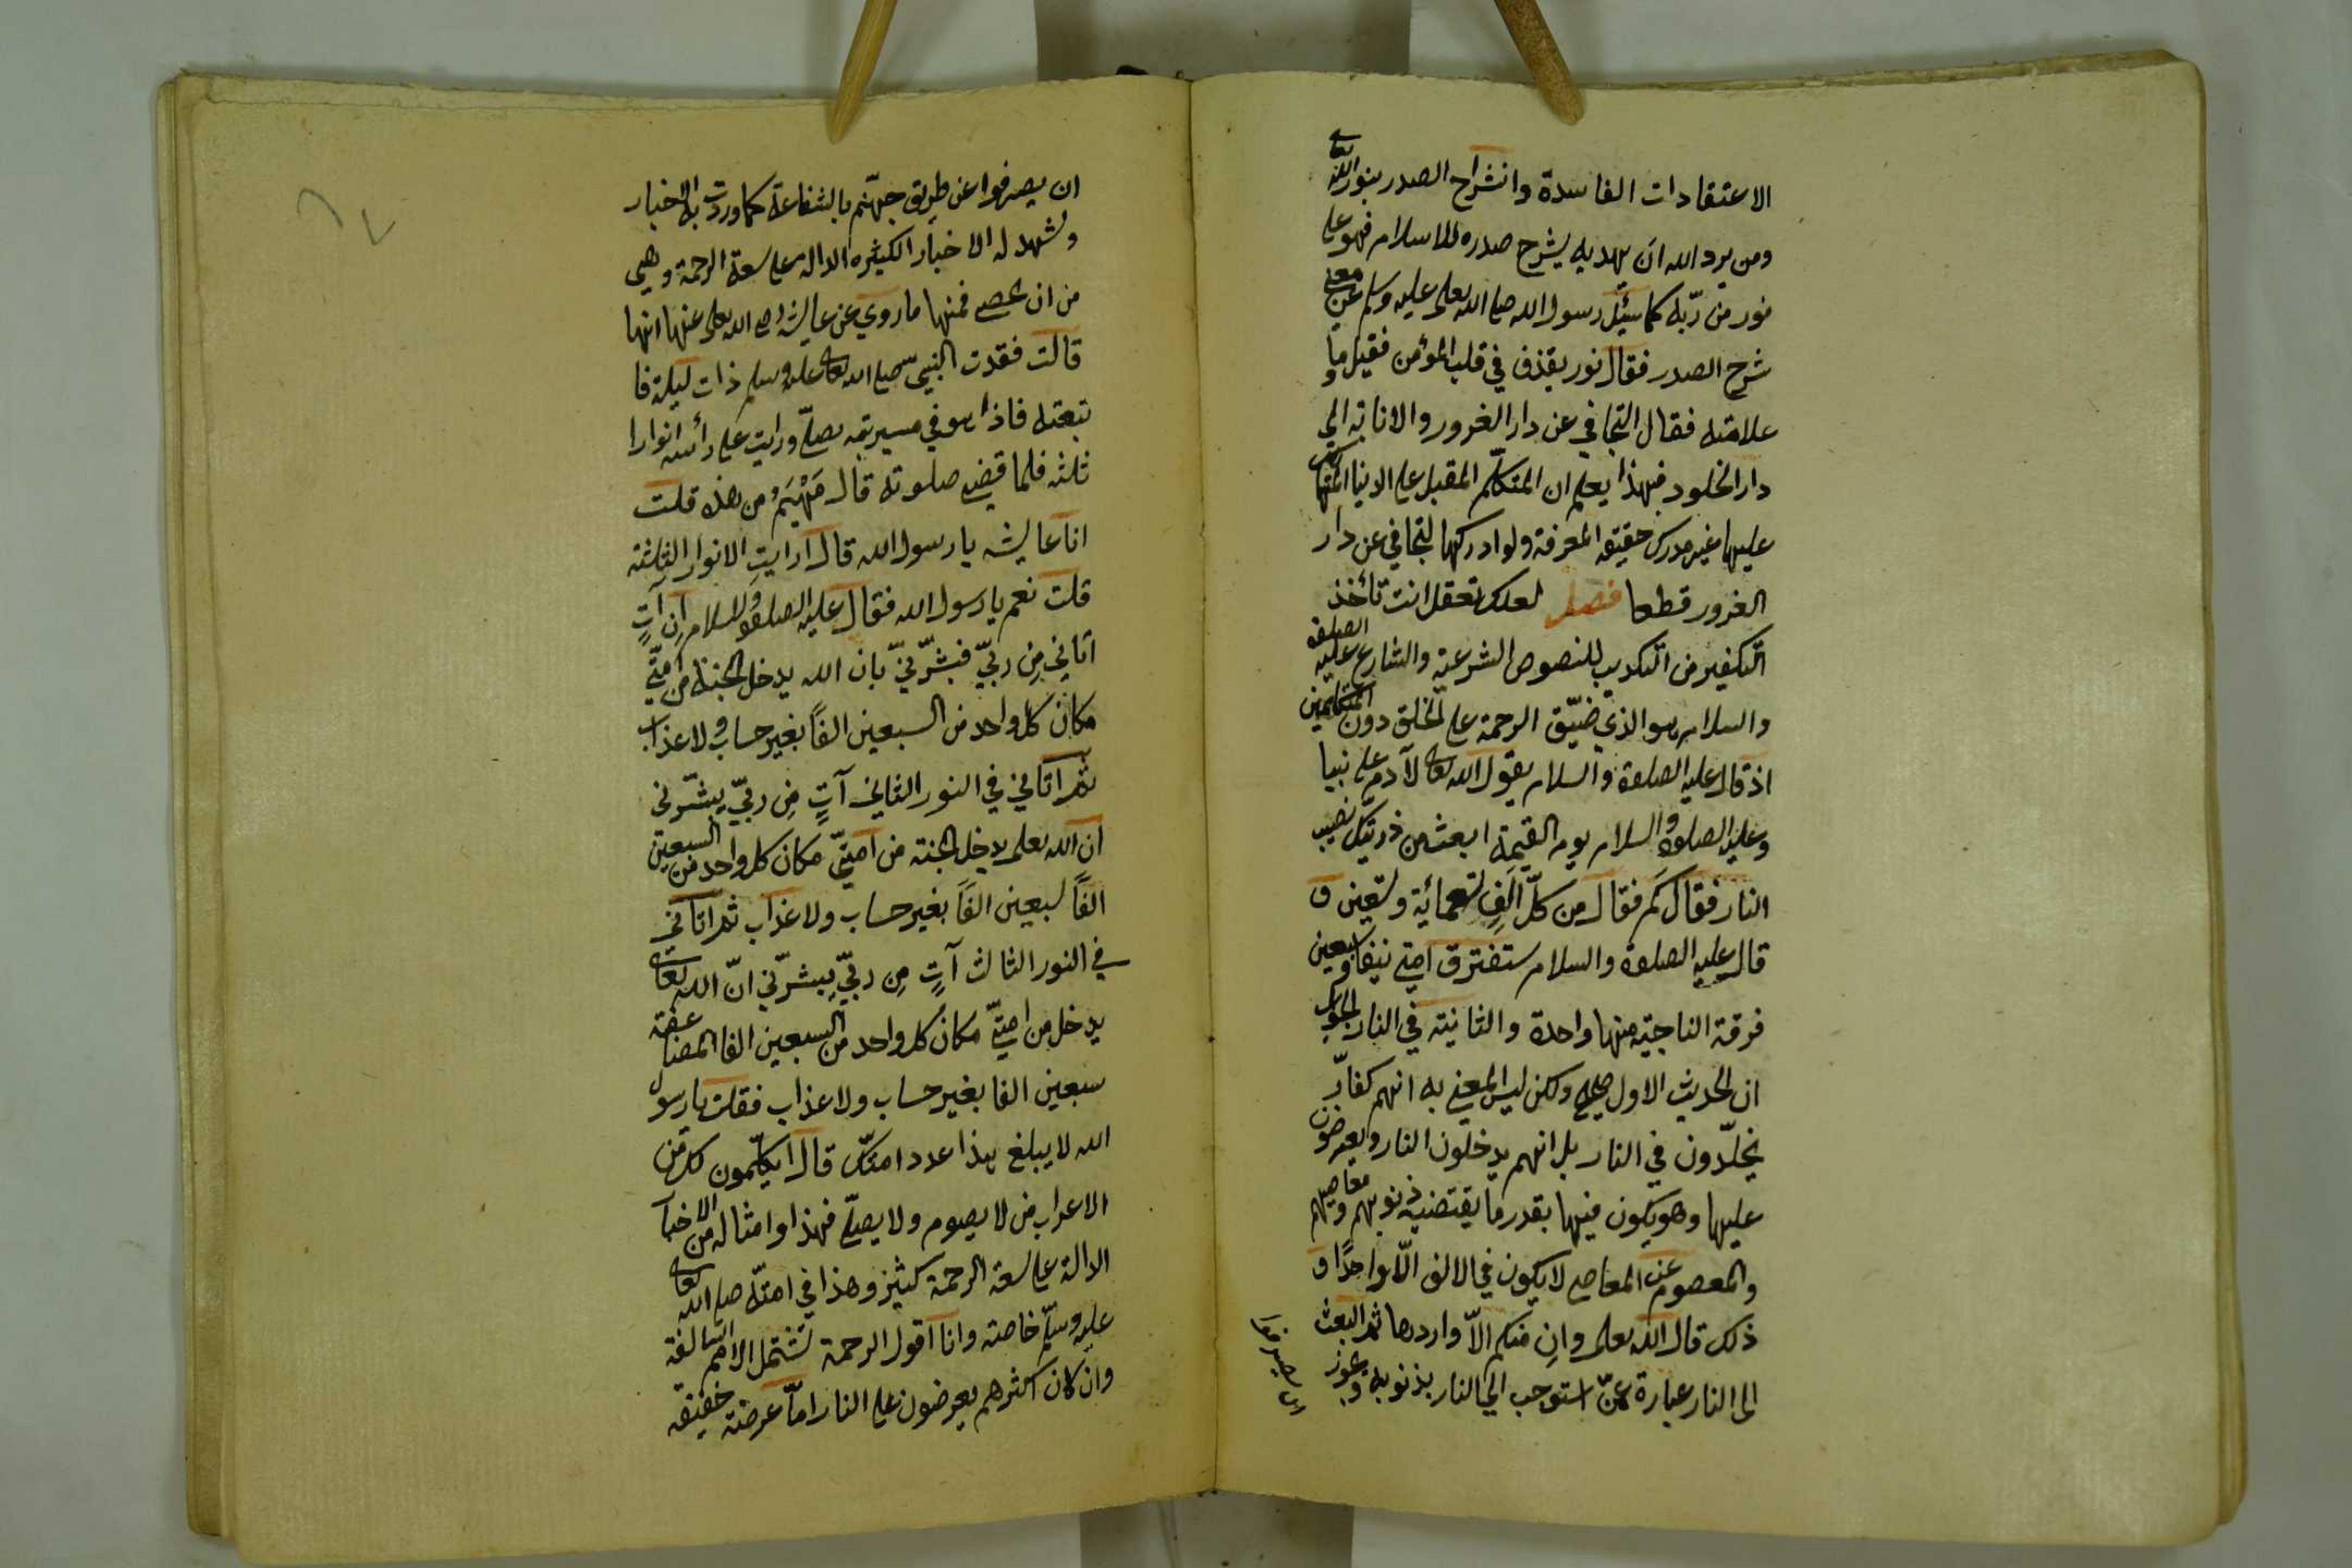 الاعتقادات الفاسدة وانشراح الصدر بنور الله تعالى
ومن يرد الله ان يهديه يشرح صدره للاسلام فهو على
نور من ربّه كما سئِل رسول الله صلى الله تعالى عليه وسلم عن معنى
شرح الصدر فقال نور يقذف في قلب المؤمن فقيل وما
علامته فقال التجافي عن دار الغرور والانابة الى
دار الخلود فبهذا يعلم ان المتكلّم المقبل على الدنيا المتهالك
عليها غير مدرك حقيقة المعرفة ولو ادركها لتجافى عن دار
الغرور قطعا فصل لعلك تعقل انت تأخذ
التكفير من التكذيب للنصوص الشرعية والشارع عليه الصلوة
والسلام هو الذي ضيّق الرحمة على الخلق دون المتكلمين
اذ قال عليه الصلوة والسلام يقول الله تعالى لآدم على نبينا
وعليه الصلوة والسلام يوم القيمة ابعث من ذريتك نصيب
النار فقال كَم فقال من كلّ الفٍ تسعمائة وتسعين و
قال عليه الصلوة والسلام ستفترق امتي نيفا وسبعين
فرقة الناجية منها واحدة والثانية في النار الجواب
ان الحديث الاول صحيح ولكن ليس المعنى به انهم كفّار
يخلّدون في النار بل انهم يدخلون النار ويعرضون
عليها وهو يكون فيها بقدر ما يقتضيه ذنوبهم ومعاصيهم
والمعصوم عن المعاصي لا يكون في الالف الّا واحدًا و
ذلك قال الله تعالى وان منكم الاّ واردها ثم البعث
الى النار عبارة عمّن استوجب الى النار بذنوبه ويجوز
ان يصرفوا
ان يصرفوا عن طريق جهنّم بالشفاعة كما وردت به الاخبار
وتشهد له الاخبار الكثيره الدالة على سعة الرحمة وهى
من ان يحصى فمنها ما روي عن عايشة رضى الله تعالى عنها انها
قالت فقدت النبيّ صلى الله تعالى عليه وسلم ذات ليلة فا
تبعته فاذا هو في مسيرته يصلّي ورايت على رأسه انوارا
ثلثة فلما قضى صلوته قال مَهْيَمْ من هذه قلت
انا عايشه يا رسول الله قال ارايتِ الانوار الثلثة
قلت نعم يا رسول الله فقال عليه الصلوة والسلام اِن آتٍ
اتاني مِن ربّي فبشّرنيّ بان الله يدخل الجنة من امتّي
مكان كل واحد من السبعين الفاً بغير حساب ولا عذاب
ثم اتاني في النور الثاني آتٍ مِن ربّي يبشّرني
ان الله تعلى يدخل الجنة من امتّي مكان كل واحد من السبعين
الفاً سبعين الفاَ بغير حساب ولا عذاب ثم اتاني
في النور الثالث آتٍ مِن ربّي يبشرّني انّ الله تعالى
يدخل من امتّي مكان كل واحد من السبعين الفا المضاعفة
سبعين الفا بغير حساب ولا عذاب فقلت يا رسول
الله لا يبلغ هذا عدد امتك قال ايكلّمون لك من
الاعراب من لا يصوم ولا يصلّي فهذا وامثاله من الاخبار
الدالة على سعة الرحمة كثيرٌ وهذا في امتّه صلى الله تعالى
عليه وسلّم خاصة وانا اقول الرحمة تشتمل الامم السالفة
وان كان اكثرهم يعرضون على النار امّا عرضة خفيفة